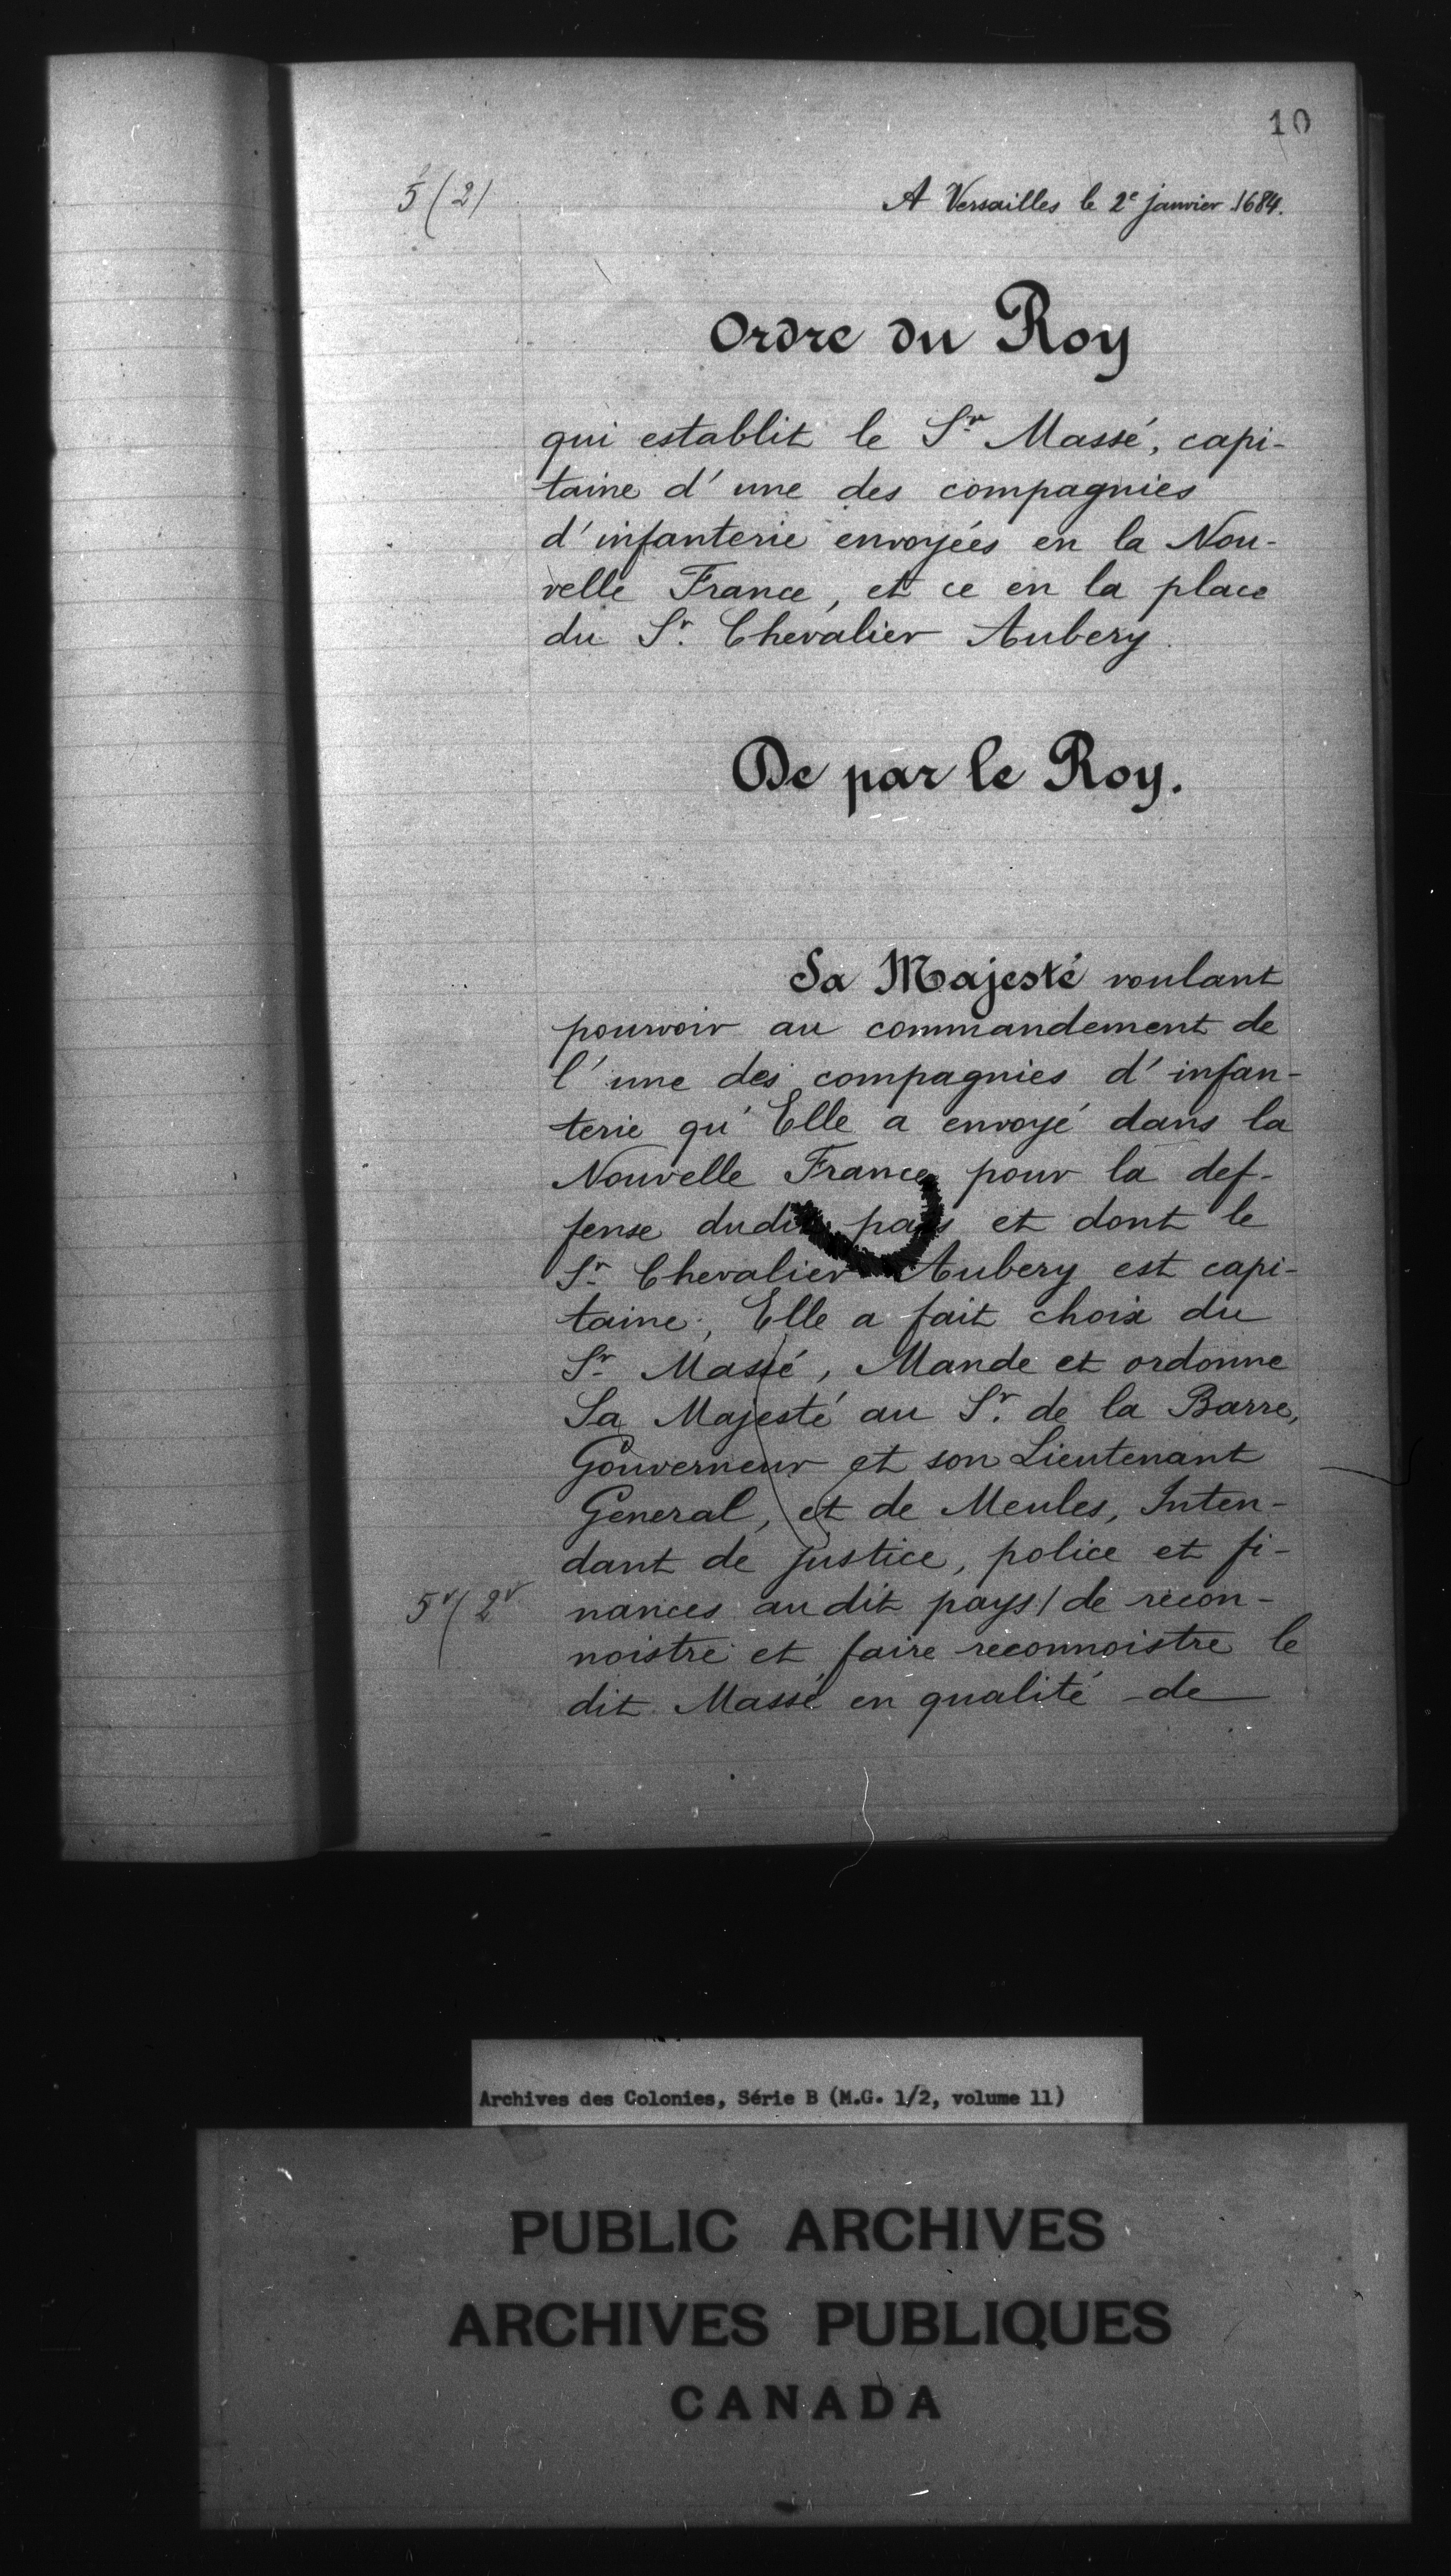 10
5 (2)
A Versailles le 2e janvier 1684.
Ordre du Roy
qui establit le Sr Massé, capi-
taine d'une des compagnies
d'infanterie envoyées en la Nou-
velle France, et ce en la place
du Sr. Chevalier Aubery.
De par le Roy.
Sa Majesté voulant
pourvoir au commandement de
l'une des compagnies d'infan-
terie qu'Elle a envoyé dans la
Nouvelle France pour la def-
fense dudit pays et dont le
Sr Chevalier Aubery est capi-
taine, Elle a fait choix du
Sr Massé, Mande et ordonne
Sa Majesté au Sr. de la Barre,
Gouverneur et son Lieutenant
General, et de Meules, Inten-
dant de justice, police et fi-
5v (2v
nances audit pays / de recon-
noistre et faire reconnoistre le
dit Massé en qualité de
Archives des Colonies, Série B (M.G. 1/2, volume 11)
PUBLIC ARCHIVES
ARCHIVES PUBLIQUES
CANADA